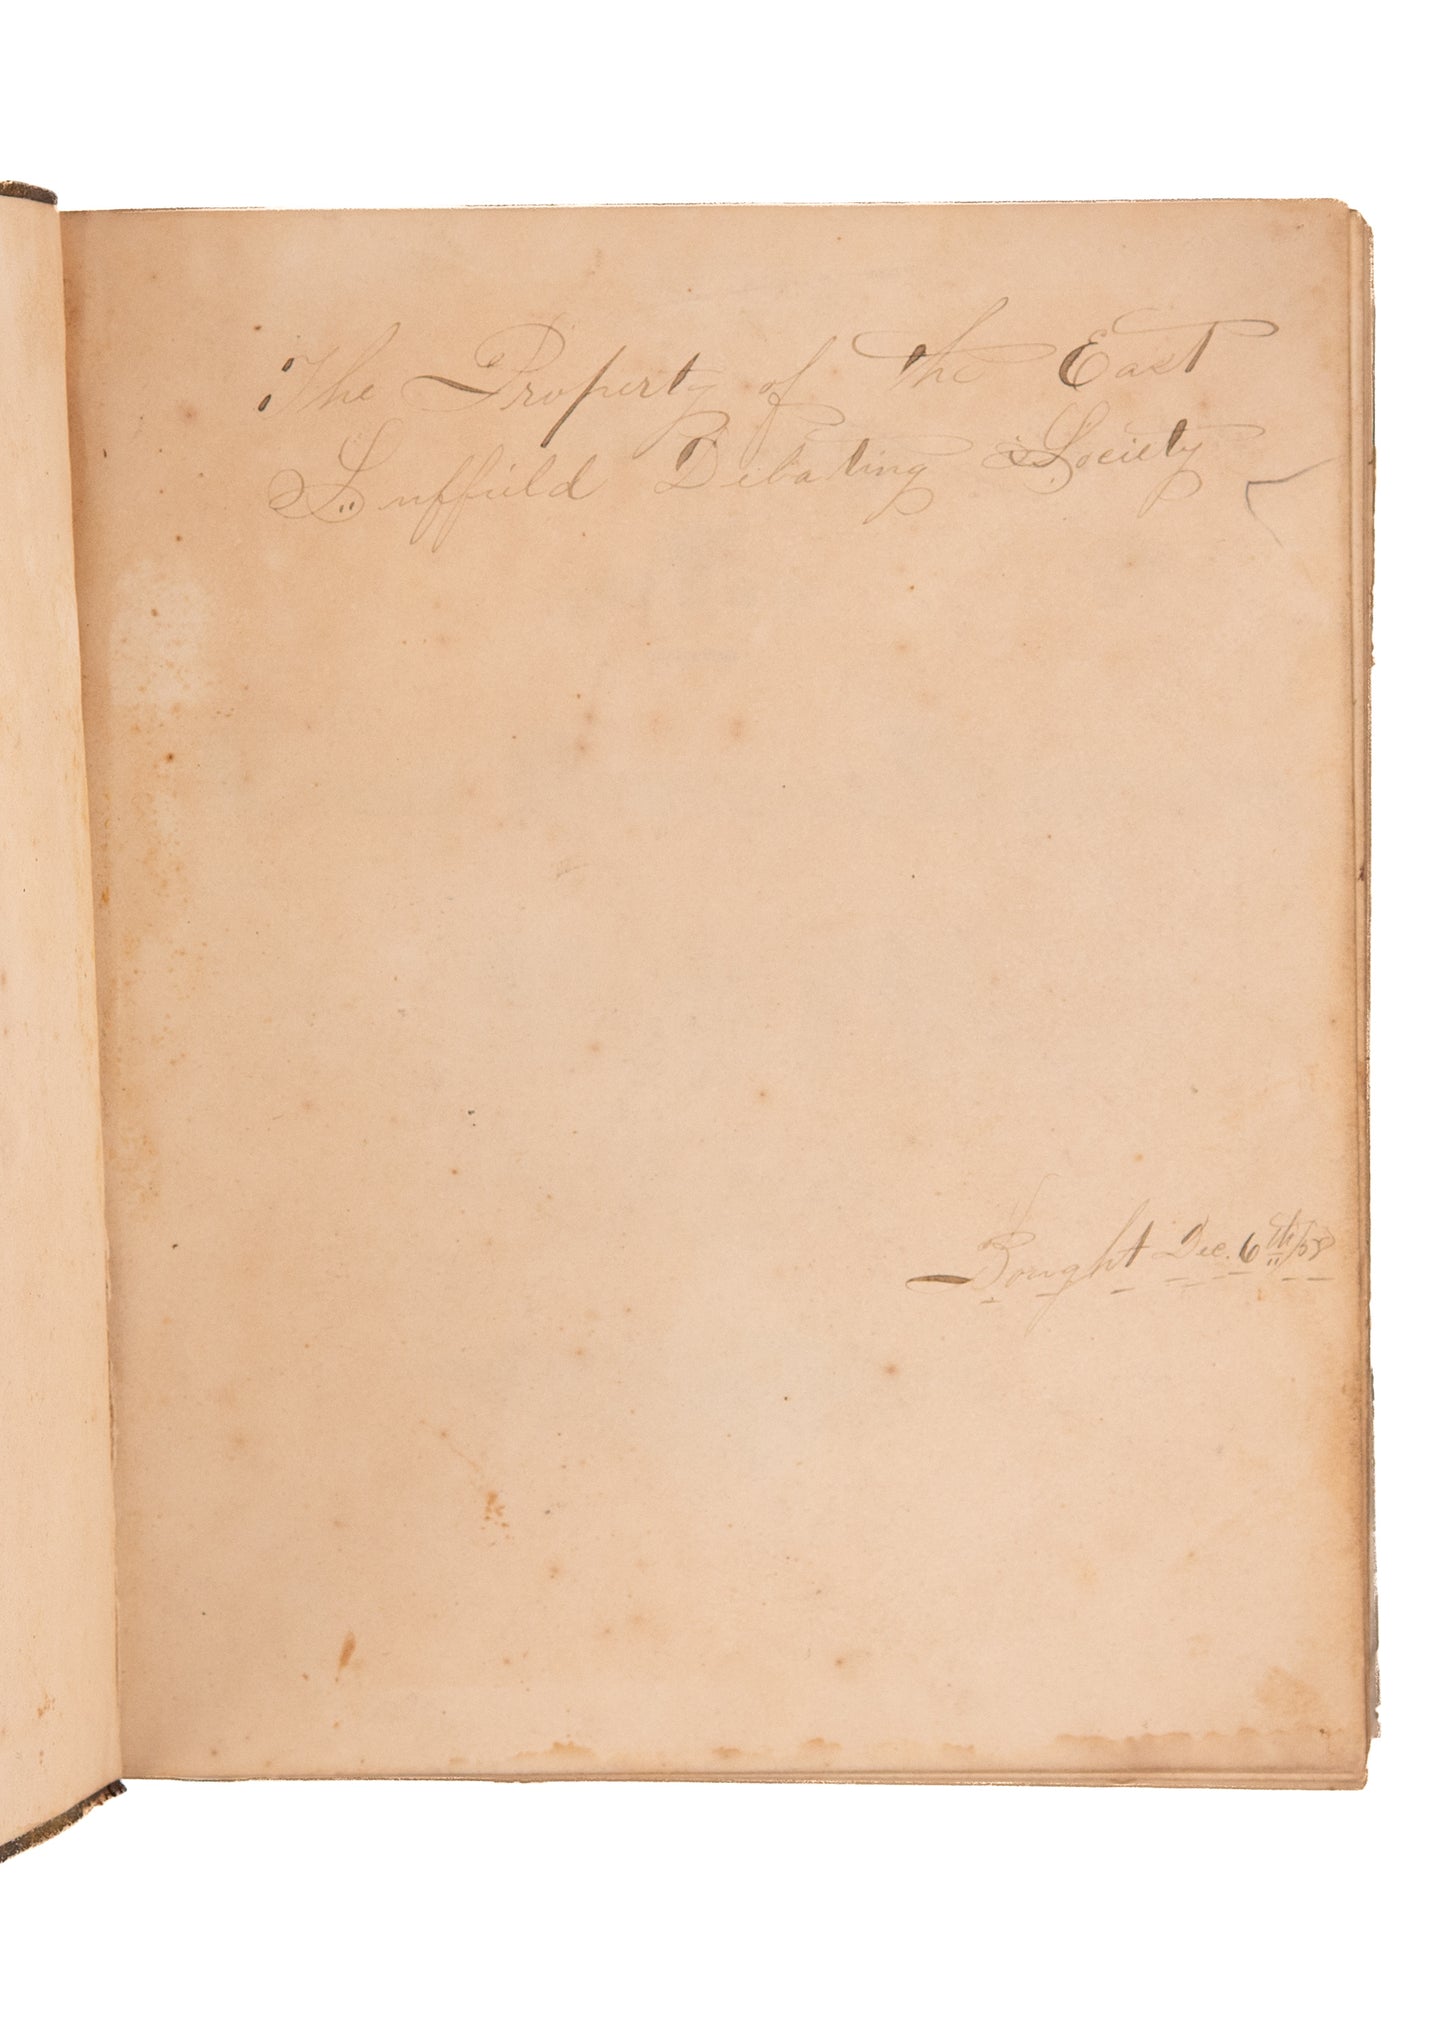 The Property of the East
Suffield Debating Society
Bought Dec. 6th/58